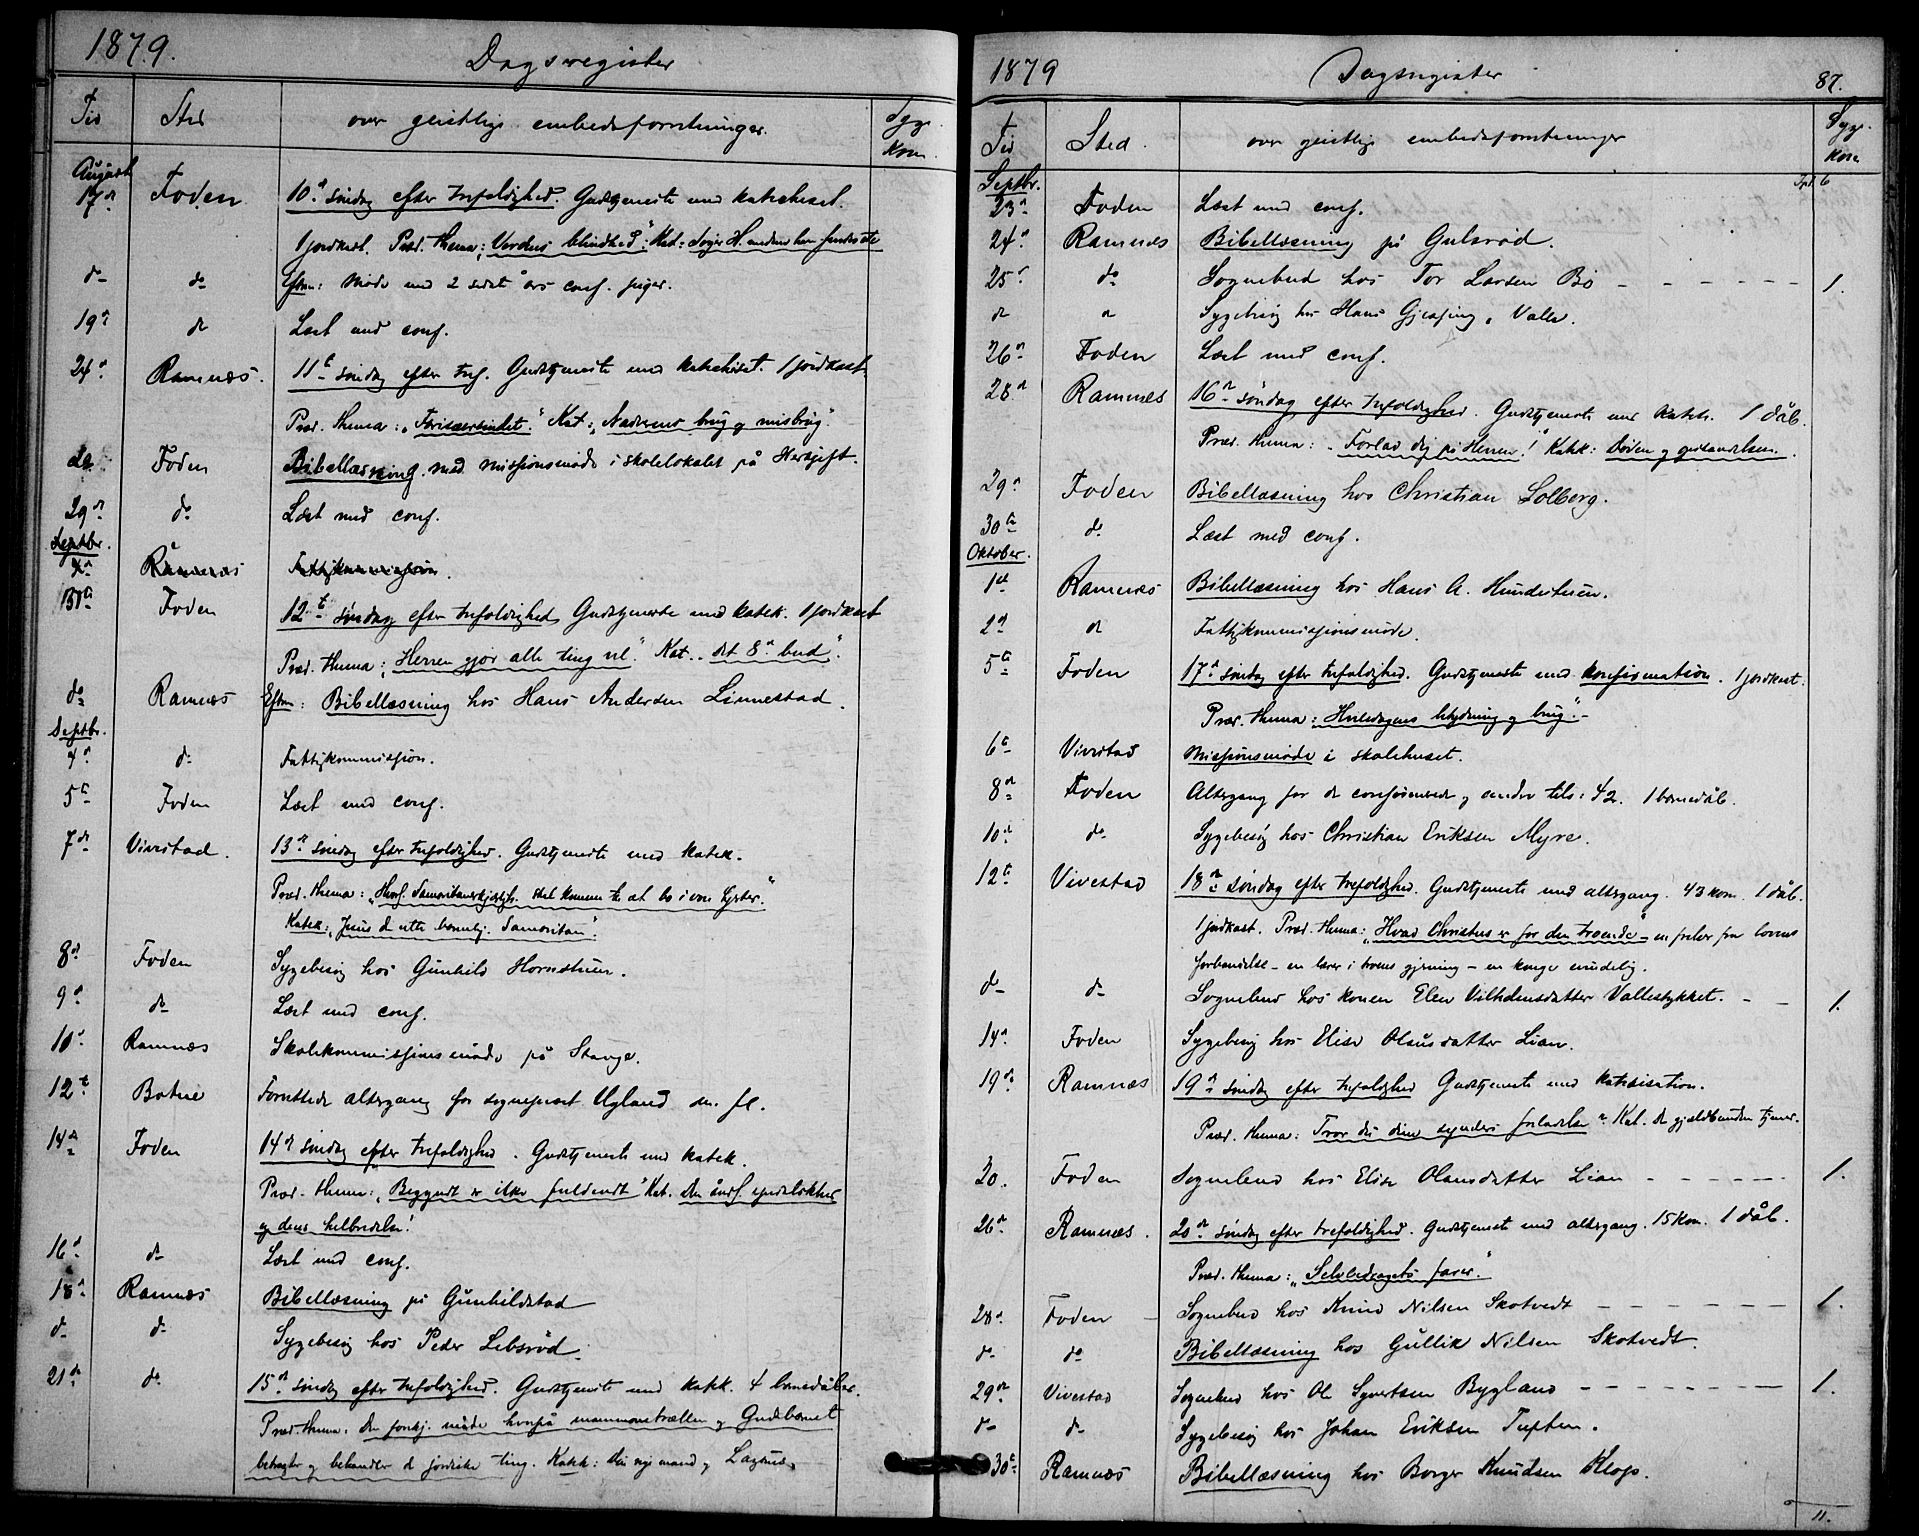 1879. Dagsregister
Tid Sted over geistlige embedsforretninger. Syge Kom.
August
17de Foden 10de søndag efter trefoldighed. Gudstjeneste med katechesat.
1 jordkast. Præd. thema: "Verdens blindhed". Kat:
do do Eftm: Møde med 2 conf. piger.
19de do Læst med conf.
24de Ramnæs. 11te søndag efter tref. Gudstjeneste med katechesat. 1 jordkast.
Præd. Thema: "Farisæersindet." Kat: "Nadverens brug og misbrug".
Foden Bibellæsning med missionsmøde i skolelokalet på
29de do Læst med conf.
Septbr.
4de Ramnæs Fattigkommission.
31te Foden 12te søndag efter trefoldighed Gudstjeneste med katek. 1 jordkast
Præd. thema: "Herren gjør alle ting vel". Kat. "det 8de bud".
do Ramnæs Eftm: Bibellæsning hos Hans Andersen Linnestad.
Septbr.
4de do Fattigkommission.
5te Foden Læst med conf.
7de Vivestad. 13de søndag efter trefoldighed. Gudstjeneste med katek.
Præd. thema: skal komme til at bo i vore
Katek: "Jesus d. rette barmhj. Samaritan".
8de Foden Sygebesøg hos Gunhild Hornstuen.
9de do Læst med conf.
10de Ramnæs Skolekommissionsmøde på Stange.
12te Botne Forrettede altergang for sognepræst Ugland m. fl.
14de Foden 14de søndag efter trefoldighed. Gudstjeneste med katek.
Præd. thema: "Begyndt er ikke fuldendt" Kat. Den åndl. spedalskhed
og dens helbredelse!
16de do Læst med conf.
18de Ramnæs Bibellæsning på Gunhildstad
do do Sygebesøg hos Peder Lebsrød.
21de do 15de søndag efter trefoldighed. Gudstjeneste med katek. 4 barnedåber.
Præd. thema: Den forskj. måde hvorpå mammonstrællen og Gudsbarnet
betragter og behandler de jordiske ting. Katek: Den rige mand og Lazarus.
1879 Dagsregister 87.
Tid Sted. over geistlige embedsforretninger Syge. kom.
Septbr. 6
23de Foden Læst med conf.
24de Ramnæs Bibellæsning på Gulsrød.
25de do Sognebud hos Tor Larsen Bø - - - - - - 1.
do do Sygebesøg hos Hans Valle.
26de Foden Læst med conf.
28de Ramnæs 16de søndag efter trefoldighed. Gudstjeneste med katek. 1 dåb.
Præd. thema: "Forlad dig på Herren!" Katek: Døden og opstandelsen.
29de Foden Bibellæsning hos Christian Solberg.
30te do Læst med conf.
Oktober.
1ste Ramnæs Bibellæsning hos Hans A. Hundstuen.
2de do Fattigkommissionsmøde.
5te Foden 17de søndag efter trefoldighed. Gudstjeneste med konfirmation. 1 jordkast.
Præd. thema: "Hviledagens betydning og brug".
6te Vivestad Missionsmøde i skolehuset.
8de Foden Altergang for de confirmerede og andre tils: 42. 1 barnedåb.
10de do Sygebesøg hos Christian Eriksen Myre.
12te Vivestad 18de søndag efter trefoldighed. Gudstjeneste med altergang. 43 kom. 1 dåb.
1 jordkast. Præd. thema: "Hvad Christus er for den troende" - en frelser fra lovens
forbandelse - en lærer i troens gjerning - en konge
do do Sognebud hos konen Elen Vilhelmsdatter Vallestykket. - - 1.
14de Foden Sygebesøg hos Elise Olausdatter Lian.
19de Ramnæs 19de søndag efter trefoldighed Gudstjeneste med katekisation.
Præd. thema: Tror du dine synders forladelse? Kat. De gjældbundne tjener.
20. Foden Sognebud hos Elise Olausdatter Lian - - - - - - 1.
26de Ramnæs. 20de søndag efter trefoldighed. Gudstjeneste med altergang. 15 kom. 1 dåb.
Præd. thema: "Selvbedragets farer."
28de Foden Sognebud hos Knud Nilsen Skotvedt - - - - - - 1.
do do Bibellæsning hos Gullik Nilsen Skotvedt.
29de Vivestad Sognebud hos Ole Syvertsen Bygland - - - - - - 1.
do do Sygebesøg hos Johan Eriksen Tuften.
30te Ramnæs Bibellæsning hos Borger Knudsen Klop.
11.